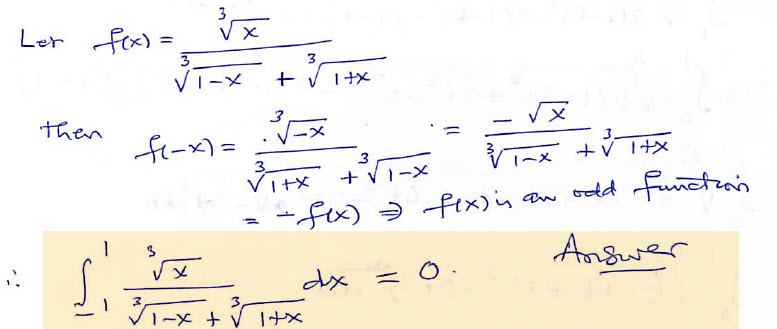 Let f(x) = ∛x / (∛(1-x) + ∛(1+x))
then f(-x) = ∛(-x) / (∛(1+x) + ∛(1-x)) = -√x / (∛(1-x) + ∛(1+x))
= -f(x) ⇒ f(x) is an odd function
∴ ∫₋₁¹ ∛x / (∛(1-x) + ∛(1+x)) dx = 0. Answer